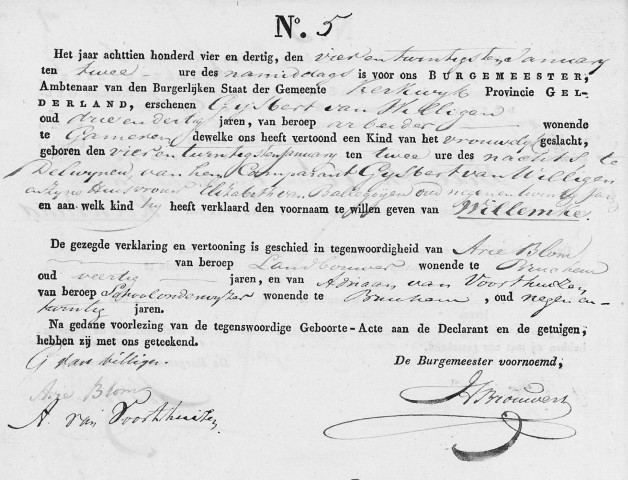 N°. 5
Het jaar achttien honderd vier en dertig, den vier en twintigsten January
ten twee ure des namiddags is voor ons BURGEMEESTER,
Ambtenaar van den Burgerlijken Staat der Gemeente Kerkwyk Provincie GEL-
DERLAND, erschenen Gysbert van Willigen
oud drie en dertig jaren, van beroep arbeider wonende
te Gameren dewelke ons heeft vertoond een Kind van het vrouwelyk geslacht,
geboren den vier en twintigsten January ten twee ure des nachts te
Delwynen, van hem Comparant Gysbert van Willigen
en zyne Huisvrouw Elizabeth van oud negen en twintig Jaar
en aan welk kind hy heeft verklaard den voornaam te willen geven van Willemke.
De gezegde verklaring en vertooning is geschied in tegenwoordigheid van Arie Blom
van beroep Landbouwer wonende te Bruchem
oud veertig jaren, en van Adriaan van Voorthuizen
van beroep Schoolonderwyzer wonende te Bruchem, oud negen en
twintig jaren.
Na gedane voorlezing van de tegenswoordige Geboorte-Acte aan de Declarant en de getuigen,
hebben zij met ons geteekend.
G van willigen. De Burgemeester voornoemd,
Arie Blom
A. van Voorthuizen